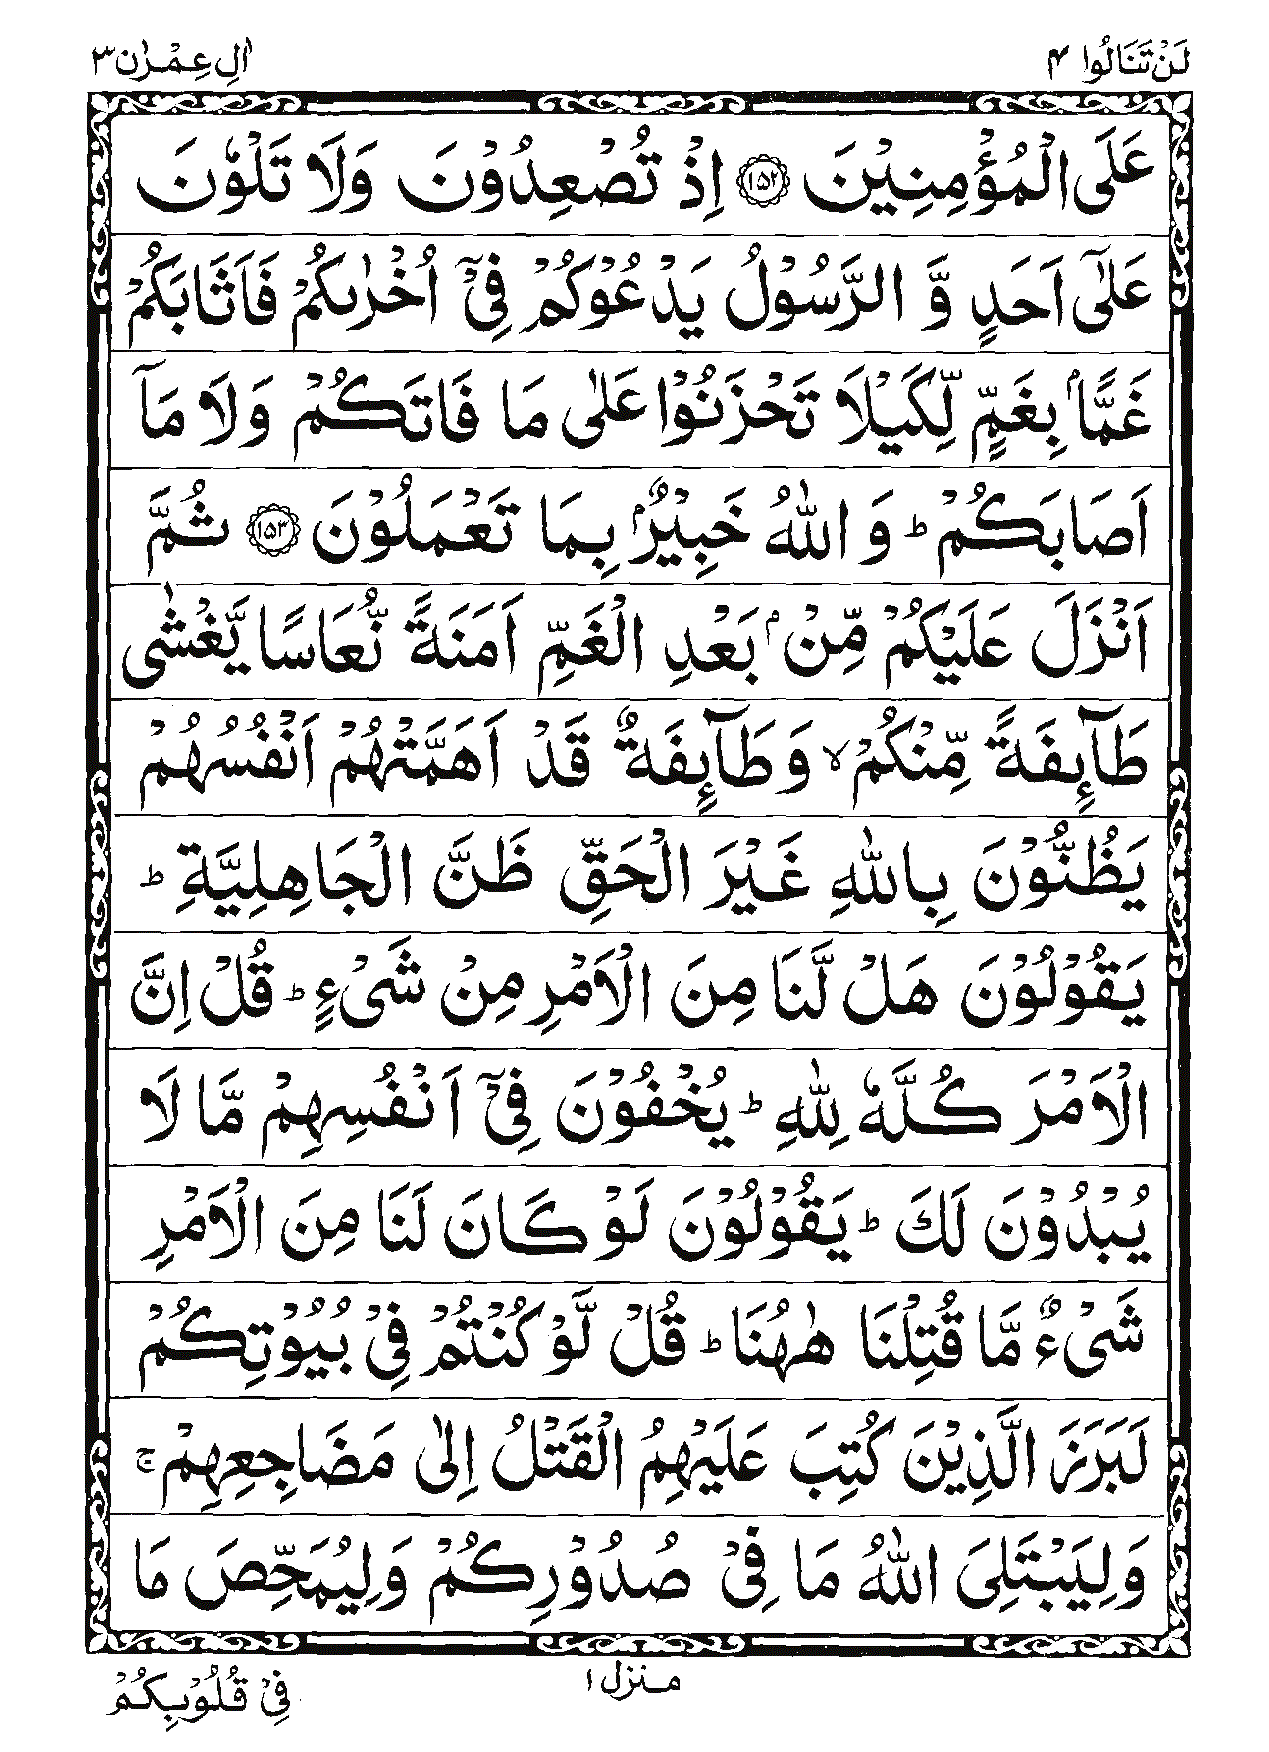 لَنْ تَنَالُوا ۴
اٰلِ عِمْرٰن ۳
عَلَى الْمُؤْمِنِيْنَ ﴿۱۵۲﴾ اِذْ تُصْعِدُوْنَ وَلَا تَلْوٗنَ
عَلٰٓى اَحَدٍ وَّ الرَّسُوْلُ يَدْعُوْكُمْ فِىْٓ اُخْرٰىكُمْ فَاَثَابَكُمْ
غَمًّاۢ بِغَمٍّ لِّكَيْلَا تَحْزَنُوْا عَلٰى مَا فَاتَكُمْ وَلَا مَآ
اَصَابَكُمْ ؕ وَ اللّٰهُ خَبِيْرٌۢ بِمَا تَعْمَلُوْنَ ﴿۱۵۳﴾ ثُمَّ
اَنْزَلَ عَلَيْكُمْ مِّنْۢ بَعْدِ الْغَمِّ اَمَنَةً نُّعَاسًا يَّغْشٰى
طَآٮِٕفَةً مِّنْكُمْ ۙ وَطَآٮِٕفَةٌ قَدْ اَهَمَّتْهُمْ اَنْفُسُهُمْ
يَظُنُّوْنَ بِاللّٰهِ غَيْرَ الْحَقِّ ظَنَّ الْجَاهِلِيَّةِ ؕ
يَقُوْلُوْنَ هَلْ لَّنَا مِنَ الْاَمْرِ مِنْ شَىْءٍ ؕ قُلْ اِنَّ
الْاَمْرَ كُلَّهٗ لِلّٰهِ ؕ يُخْفُوْنَ فِىْٓ اَنْفُسِهِمْ مَّا لَا
يُبْدُوْنَ لَكَ ؕ يَقُوْلُوْنَ لَوْ كَانَ لَنَا مِنَ الْاَمْرِ
شَىْءٌ مَّا قُتِلْنَا هٰهُنَا ؕ قُلْ لَّوْ كُنْتُمْ فِىْ بُيُوْتِكُمْ
لَبَرَزَ الَّذِيْنَ كُتِبَ عَلَيْهِمُ الْقَتْلُ اِلٰى مَضَاجِعِهِمْ ۚ
وَلِيَبْتَلِىَ اللّٰهُ مَا فِىْ صُدُوْرِكُمْ وَلِيُمَحِّصَ مَا
منزل ۱
فِىْ قُلُوْبِكُمْ